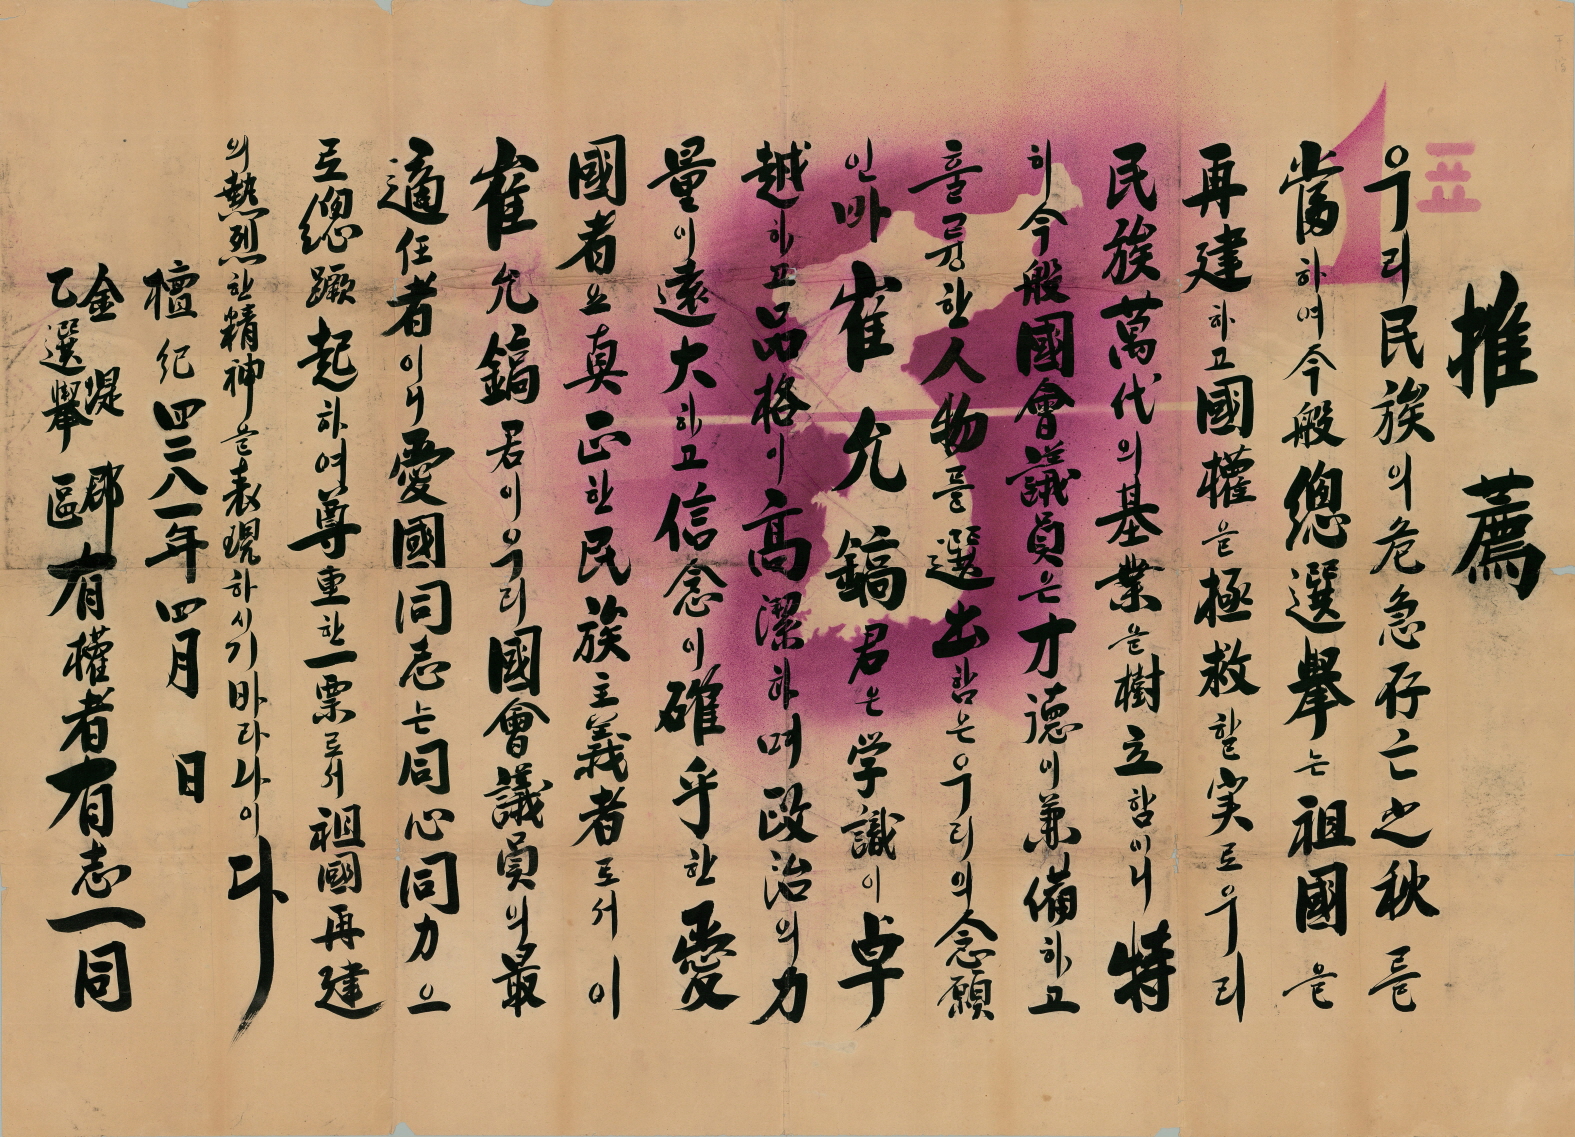 推薦
우리民族의危急存亡之秋를
當하여今般總選擧는祖國을
再建하고國權을極救할実로우리
民族萬代의基業을樹立함이니特
히今般國會議員은才德이兼備하고
훌륭한人物를選出함은우리의念願
인바崔允鎬君은学識이卓
越하고品格이高潔하며政治의力
量이遠大하고信念이確乎한愛
國者요眞正한民族主義者로서이
崔允鎬君이우리國會議員의最
適任者이니愛國同志는同心同力으
로總蹶起하여尊重한一票로서祖國再建
의熱烈한精神을表現하시기바라나이다
檀紀四二八一年四月 日
金堤郡
乙選擧區
有權者有志一同
1표